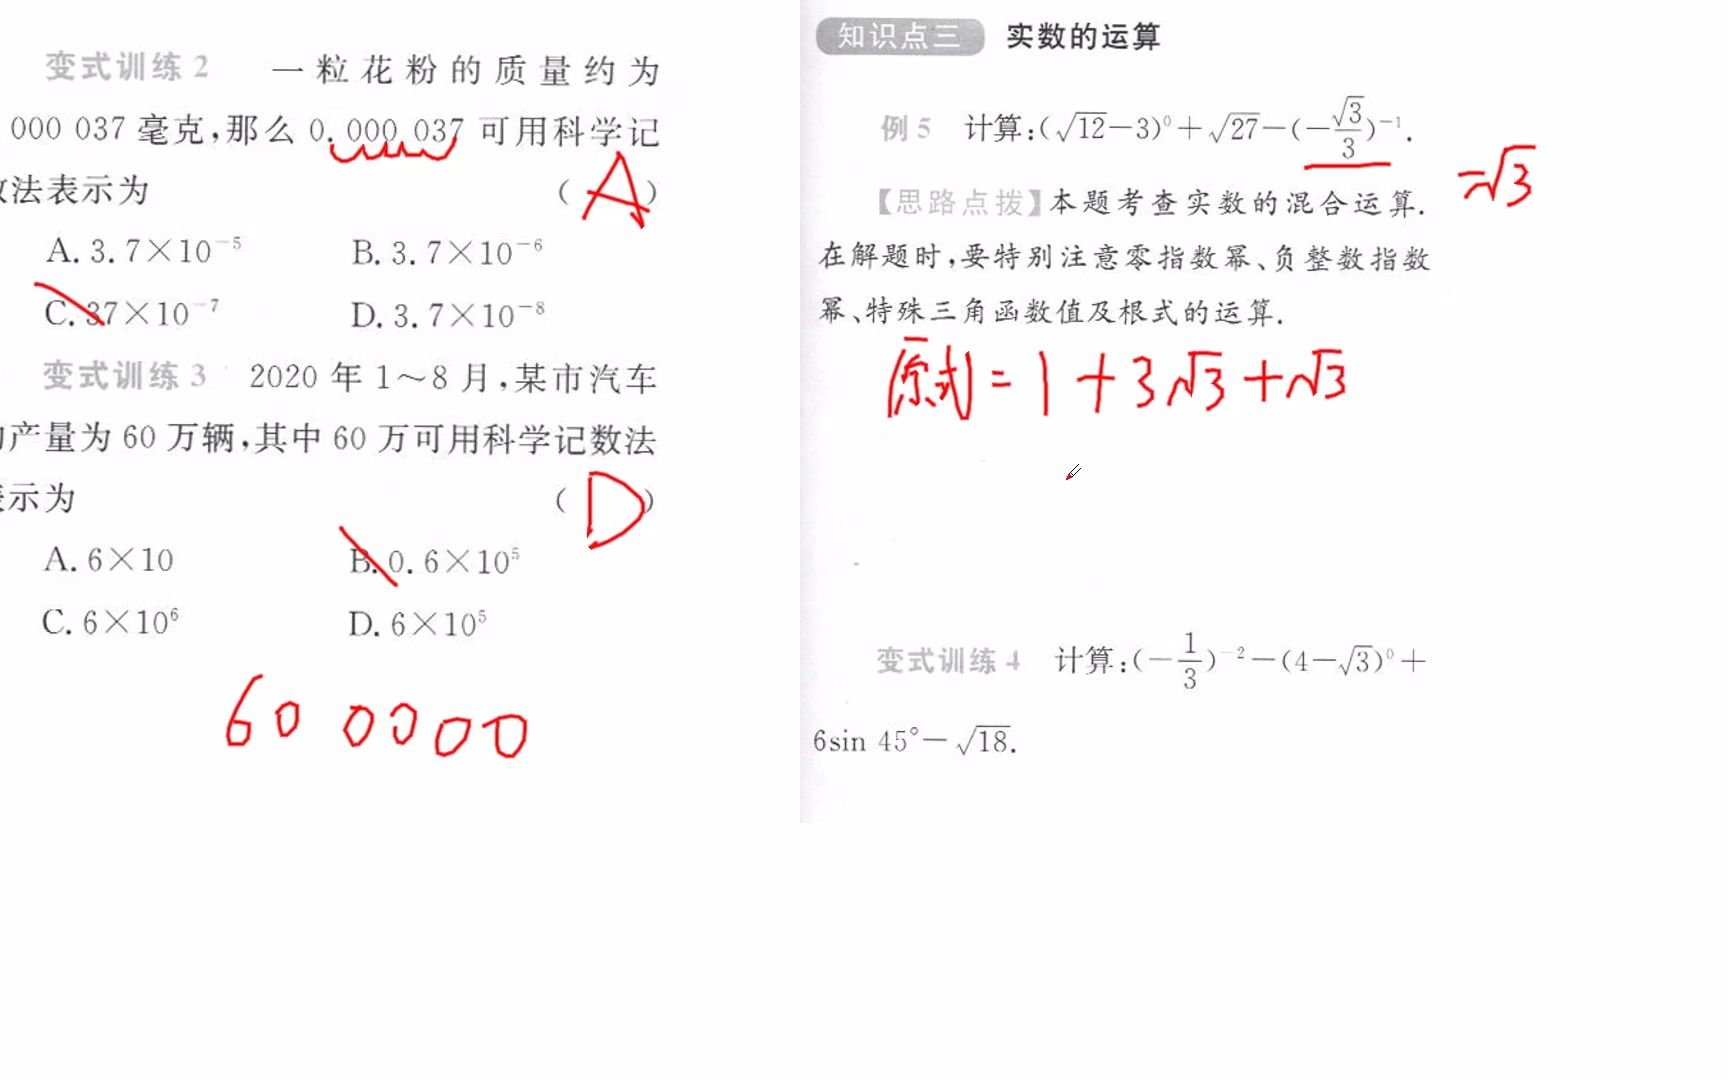 变式训练2 一粒花粉的质量约为
000 037 毫克,那么 0.000 037 可用科学记
法表示为 ( A )
A. 3.7×10⁻⁵ B. 3.7×10⁻⁶
C. 37×10⁻⁷ D. 3.7×10⁻⁸
变式训练3 2020 年 1～8 月,某市汽车
产量为 60 万辆,其中 60 万可用科学记数法
示为 ( D )
A. 6×10 B. 0.6×10⁵
C. 6×10⁶ D. 6×10⁵
60 0000
知识点三 实数的运算
例5 计算:(√12−3)⁰+√27−(−√3/3)⁻¹.
=√3
【思路点拨】本题考查实数的混合运算.
在解题时,要特别注意零指数幂、负整数指数
幂、特殊三角函数值及根式的运算.
原式=1+3√3+√3
变式训练4 计算:(−1/3)⁻²−(4−√3)⁰+
6sin 45°−√18.